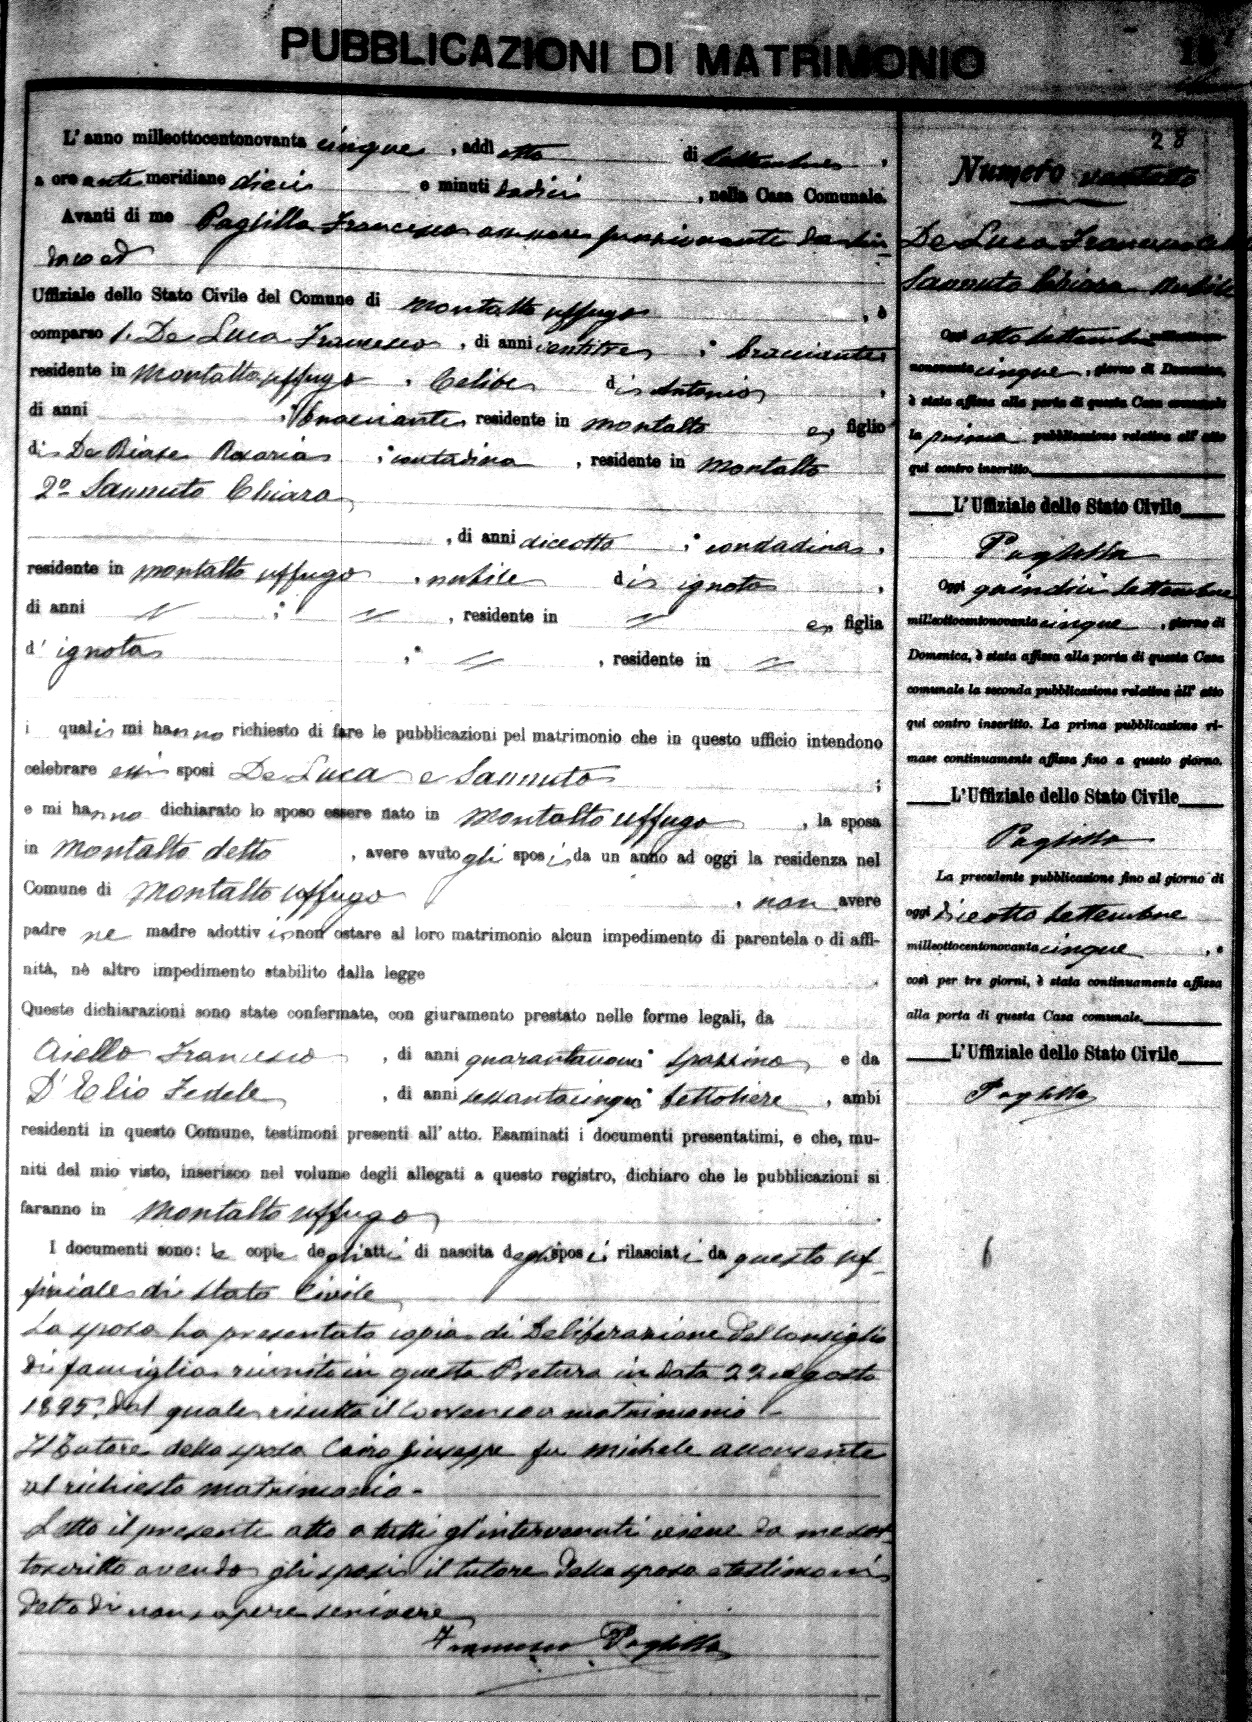 PUBBLICAZIONI DI MATRIMONIO
L'anno milleottocentonovanta cinque, addì otto di Settembre,
a ore anti meridiane dieci e minuti dodici, nella Casa Comunale.
Avanti di me Paglilla Francesco assessore funzionante da Sin
daco ed
Uffiziale dello Stato Civile del Comune di Montalto Uffugo, è
comparso 1. De Luca Francesco, di anni ventitre, bracciante
residente in Montalto Uffugo, Celibe di Antonio,
di anni , bracciante, residente in Montalto e, figlio
di De Biase Rosaria, contadina, residente in Montalto
2º Sannuto Chiara
, di anni diciotto, condadina,
residente in Montalto Uffugo, nubile di ignoto,
di anni // ; //, residente in // e, figlia
d' ignota , // , residente in //
i quali mi hanno richiesto di fare le pubblicazioni pel matrimonio che in questo ufficio intendono
celebrare essi sposi De Luca e Sannuto ;
e mi hanno dichiarato lo sposo essere nato in Montalto Uffugo, la sposa
in Montalto detto, avere avuto gli sposi da un anno ad oggi la residenza nel
Comune di Montalto Uffugo, non avere
padre ne madre adottivi non ostare al loro matrimonio alcun impedimento di parentela o di affi-
nità, nè altro impedimento stabilito dalla legge
Queste dichiarazioni sono state confermate, con giuramento prestato nelle forme legali, da
Aiello Francesco, di anni quarantanove spazzino e da
D'Elio Fedele, di anni sessantacinque bettoliere, ambi
residenti in questo Comune, testimoni presenti all'atto. Esaminati i documenti presentatimi, e che, mu-
niti del mio visto, inserisco nel volume degli allegati a questo registro, dichiaro che le pubblicazioni si
faranno in Montalto Uffugo
I documenti sono: le copie degli atti di nascita degli sposi rilasciati da questo uf-
ficiale di stato Civile
La sposa ha presentato copia di Deliberazione del Consiglio
di famiglia riunito in questa Pretura in data 22 agosto
1895, dal quale risulta il consenso a matrimonio -
Il Tutore della sposa Cairo Giuseppe fu Michele acconsente
al richiesto matrimonio -
Letto il presente atto a tutti gl'intervenuti viene da me sot-
toscritto avendo gli sposi il tutore della sposa e testimoni
detto di non sapere scrivere
Francesco Paglilla
28
Numero ventotto
De Luca Francesco
Sannuto Chiara nubile
Oggi otto Settembre milleottocento-
novanta cinque, giorno di Domenica,
è stata affissa alla porta di questa Casa comunale
la prima pubblicazione relativa all'atto
qui contro inscritto.
L'Uffiziale dello Stato Civile
Paglilla
Oggi quindici Settembre
milleottocentonovanta cinque, giorno di
Domenica, è stata affissa alla porta di questa Casa
comunale la seconda pubblicazione relativa all'atto
qui contro inscritto. La prima pubblicazione ri-
mase continuamente affissa fino a questo giorno.
L'Uffiziale dello Stato Civile
Paglilla
La precedente pubblicazione fino al giorno di
oggi diciotto Settembre
milleottocentonovanta cinque, e
così per tre giorni, è stata continuamente affissa
alla porta di questa Casa comunale.
L'Uffiziale dello Stato Civile
Paglilla
6